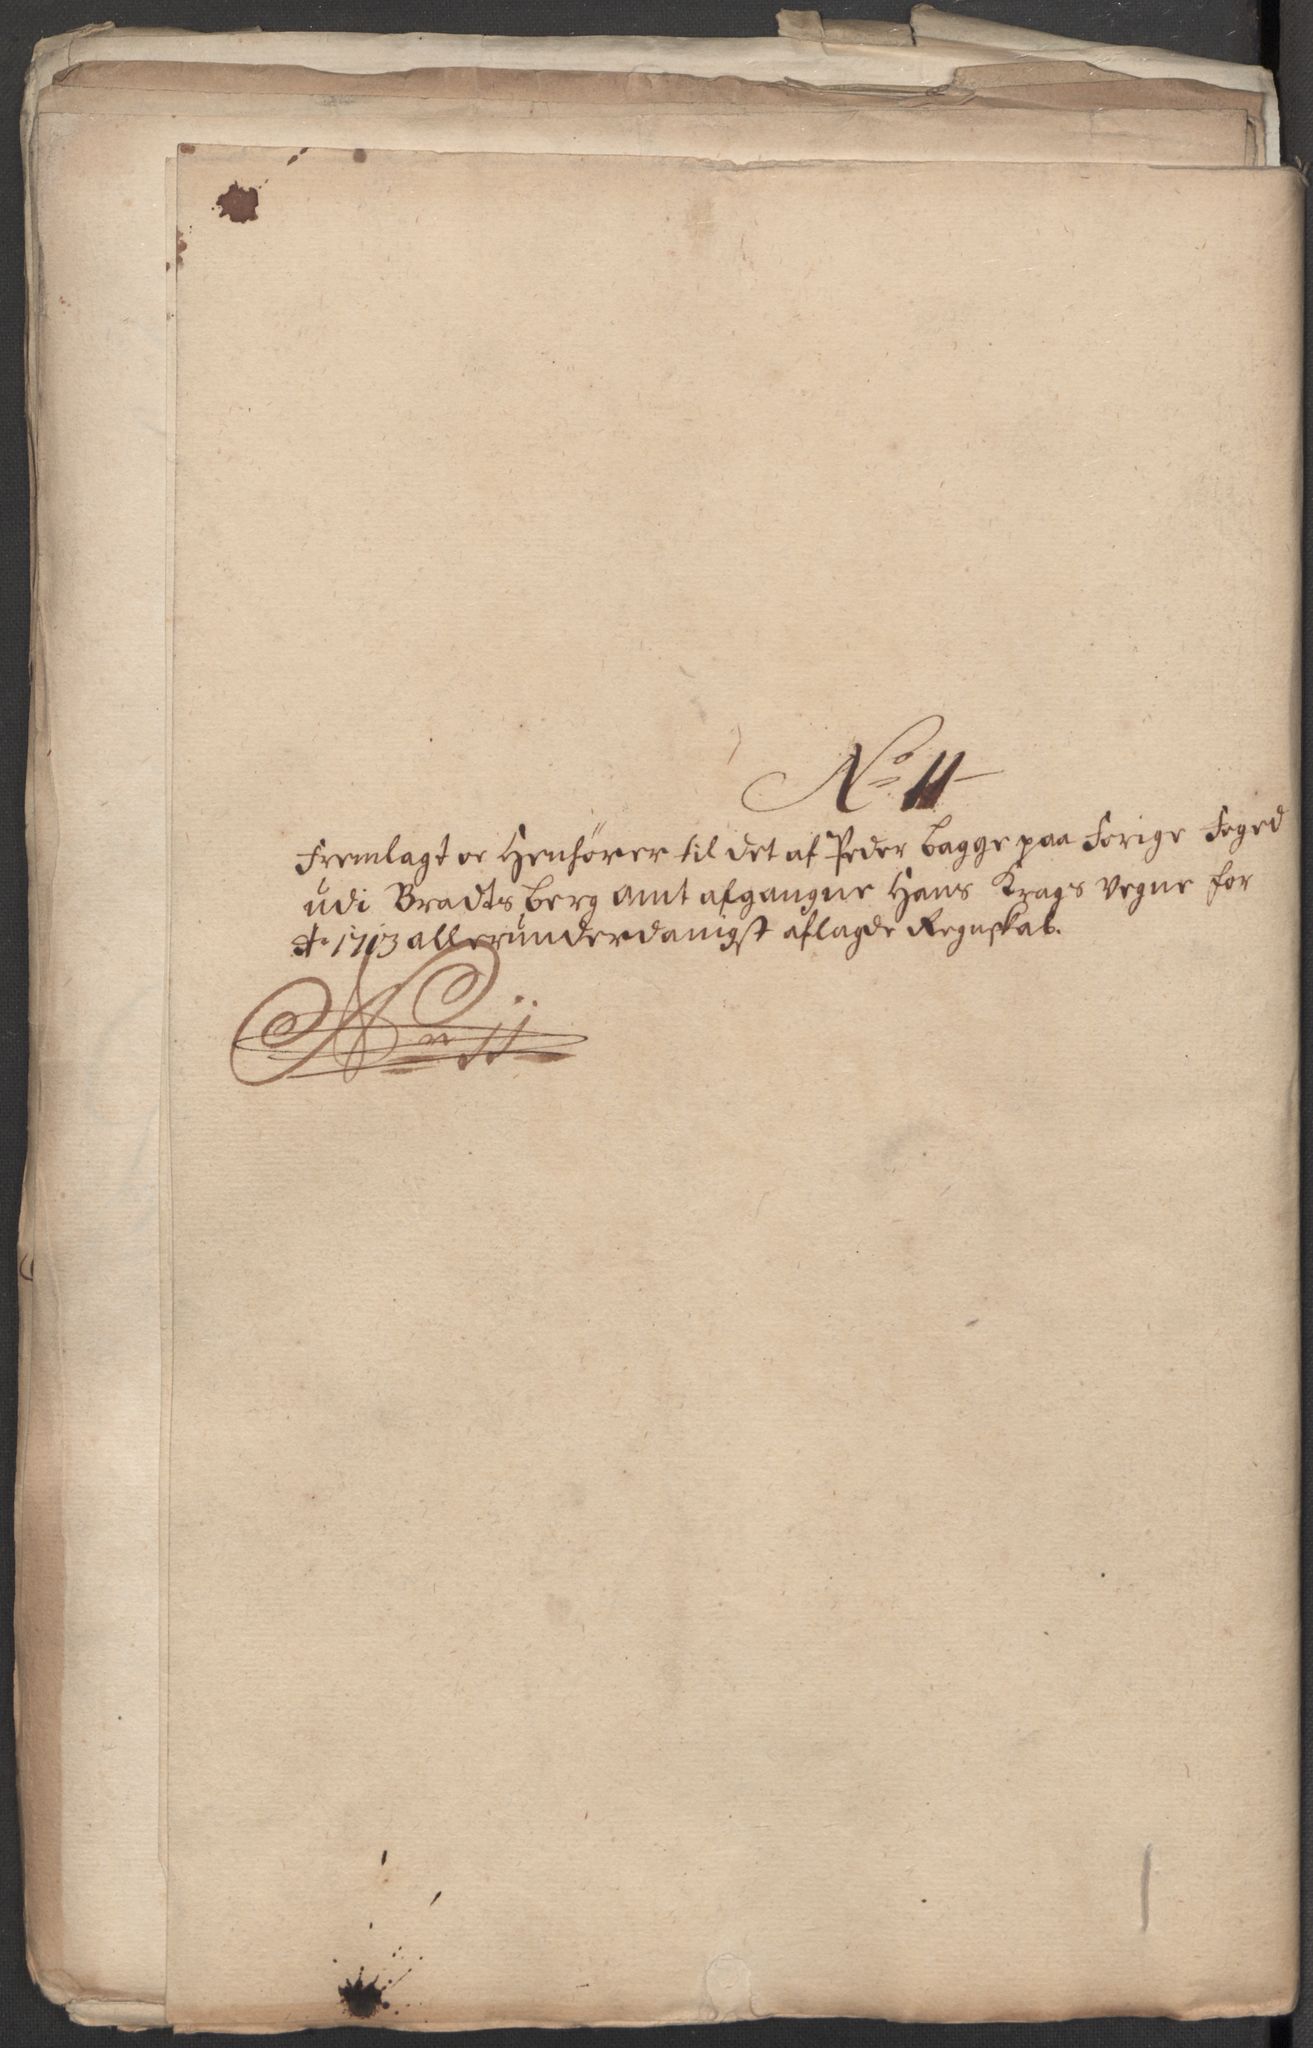 No 11
Fremlagt oc Henhörer til det af Peder Bagge paa Forige Foged
udi Bradtsberg amt afgangne Hans Krags Vegne for
Ao 1713 alleründerdanigst aflagde Regnskab.
No 11